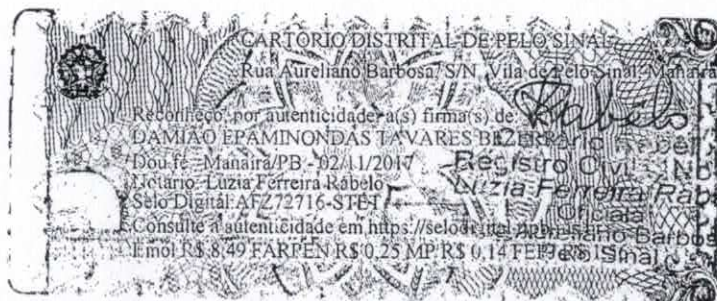 CARTÓRIO DISTRITAL DE PELO SINAL
Rua Aureliano Barbosa, S/N, Vila de Pelo Sinal, Manaíra
Reconheço, por autenticidade a(s) firma(s) de:
DAMIÃO EPAMINONDAS TAVARES BEZERRA
Dou fé. Manaíra/PB - 02/11/2017
Notário: Luzia Ferreira Rabelo
Selo Digital: AFZ72716-STET
Consulte a autenticidade em https://selodigital
Emol R$ 8,49 FARPEN R$ 0,25 MP R$ 0,14 FEPJ R$
Rabelo
Registro Civil
Luzia Ferreira Rab
Oficiala
Barbos
Sinal